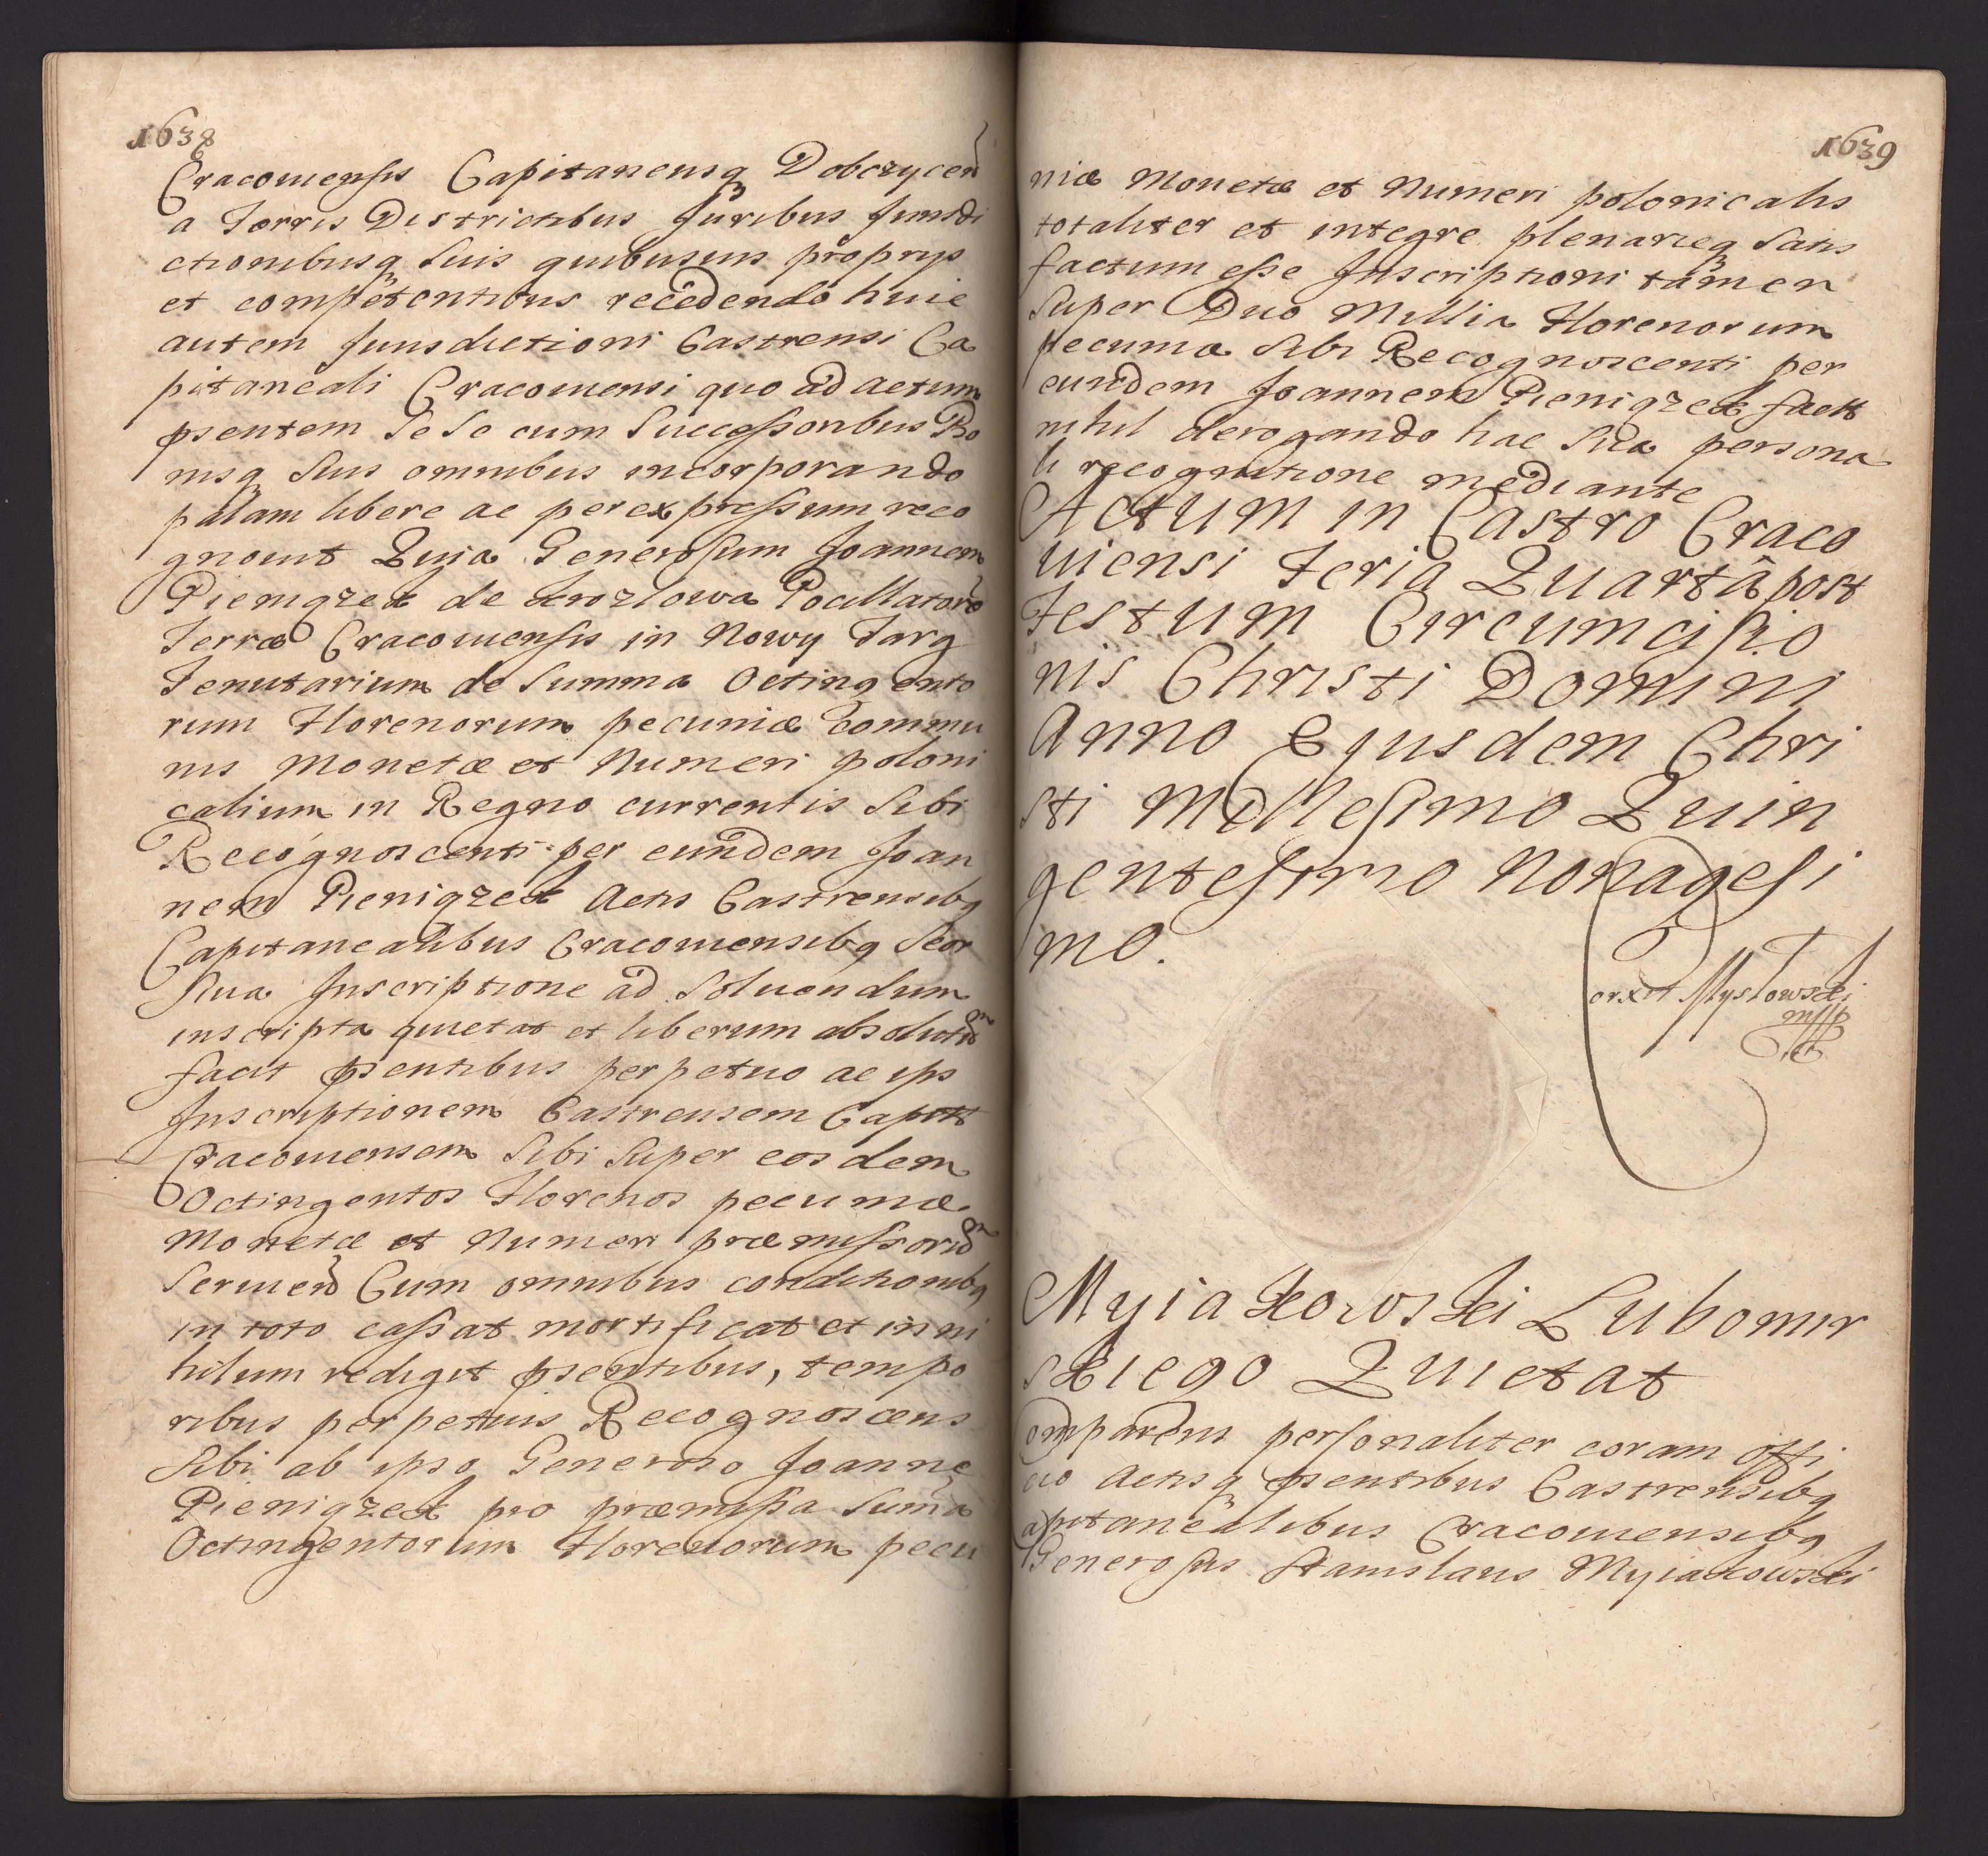 1638
Cracouiensis Capitaneusq Dobczycen
a Terris Districtibus Juribus Jurisdi
ctionibusq Suis quibusuis proprys
et competentibus recedendo huic
autem Jurisdictioni Castrensi Ca
pitaneali Cracouiensi quo ad actum
pسentem Se Se cum Successoribus Bo
nisq Suis omnibus incorporando
palam libere ac per expressum reco
gnouit Quia Generosum Joannem
Pieniązek de Kruzlowa Pocillatorē
Terræ Cracouiensis in Nowy Targ
Tenutarium de Summa Octingento
rum Florenorum pecuniæ commu
nis Monetæ et Numeri poloni
calium in Regno currentis Sibi
Recognoscenti per eundem Joan
nem Pieniązek Actis Castrensibq
Capitanealibus Cracouiensibq Seor
Siua Inscriptione ad Soluendum
inscripta quietat et liberum absolutū
facit psentibus perpetuo ac ips
Inscriptionem Castrensem Capitt
Cracouiensem Sibi Super eosdem
Octingentos Florenos pecuniæ
Monetæ et Numeri præmissorū
Seruien Cum omnibus conditionibq
in toto cassat mortificat et in ni
hilum rediget psentibus, tempo
ribus perpetuis Recognoscens
Sibi ab ipso Generoso Joanne
Pieniązek pro præmissa Suma
Octingentorum Florenorum pecu
1639
niæ Monetæ et Numeri polonicalis
totaliter et integre plenarieq Satis
factum esse Inscriptioni tamen
Super Duo Millia Florenorum
pecuniæ Sibi Recognoscenti per
eundem Joannem Pieniązek factæ
nihil derogando hac Sua persona
li recognitione mediante
Actum in Castro Craco
uiensi Feria Quartâ post
Festum Circumcisio
nis Christi Domini
Anno Ejusdem Chri
sti Millesimo Quin
gentesimo Nonagesi
mo.
orxit Mysłowski
mpp
Myiakowski Lubomir
skiego Quietat
omparens personaliter coram offi
cio Actisq psentibus Castrensibq
apitanealibus Cracouiensibq
Generosus Stanislaus Myiakowski